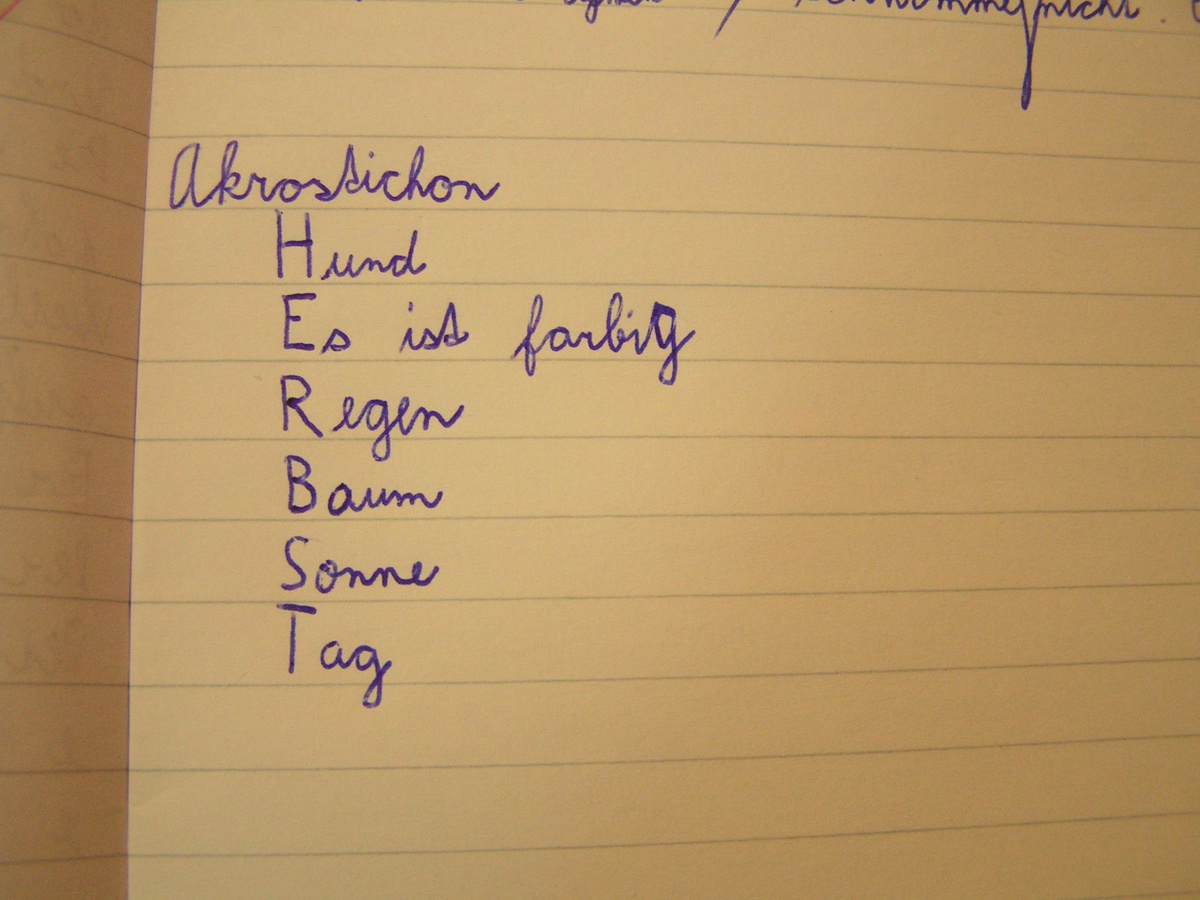 Akrostichon
Hund
Es ist farbig
Regen
Baum
Sonne
Tag